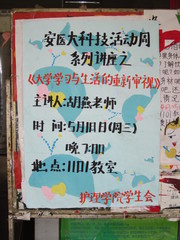 安医大科技活动周
系列讲座之
《大学学习与生活的重新审视》
主讲人:胡燕老师
时 间:5月18日(周三)
晚7:00
地点:1101教室
护理学院学生会